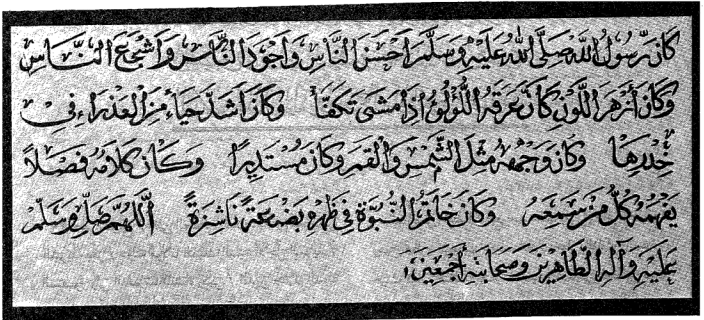 كَانَ رَسُولُ اللَّهِ صَلَّى اللَّهُ عَلَيْهِ وَسَلَّمَ أَحْسَنَ النَّاسِ وَأَجْوَدَ النَّاسِ وَأَشْجَعَ النَّاسِ
وَكَانَ أَزْهَرَ اللَّوْنِ كَأَنَّ عَرَقَهُ اللُّؤْلُؤُ إِذَا مَشَى تَكَفَّأَ وَكَانَ أَشَدَّ حَيَاءً مِنَ الْعَذْرَاءِ فِي
خِدْرِهَا وَكَانَ وَجْهُهُ مِثْلَ الشَّمْسِ وَالْقَمَرِ وَكَانَ مُسْتَدِيرًا وَكَانَ كَلَامُهُ فَصْلًا
يَفْهَمُهُ كُلُّ مَنْ سَمِعَهُ وَكَانَ خَاتَمُ النُّبُوَّةِ فِي ظَهْرِهِ بَضْعَةً نَاشِزَةً اللَّهُمَّ صَلِّ وَسَلِّمْ
عَلَيْهِ وَآلِهِ الطَّاهِرِينَ وَصَحَابَتِهِ أَجْمَعِينَ